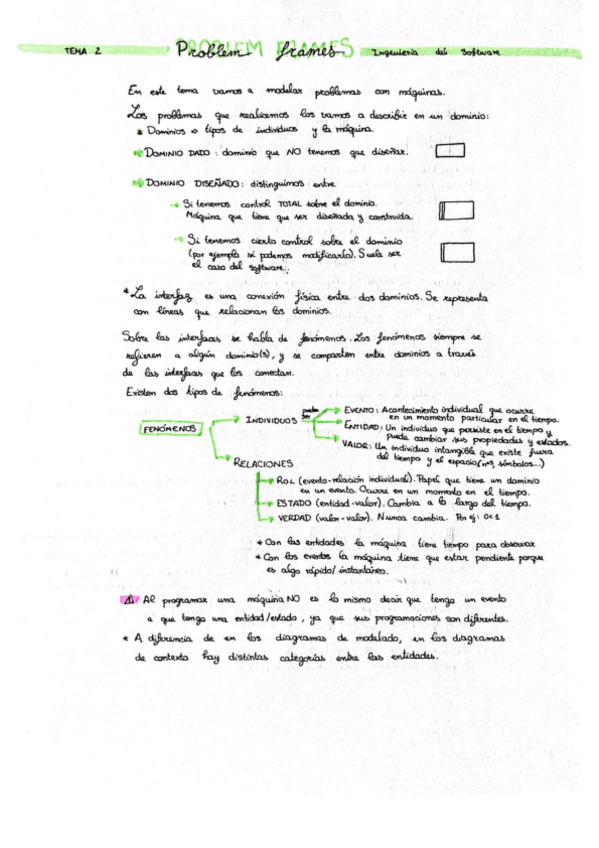 TEMA 2 Problem frames Ingeniería del Software
En este tema vamos a modelar problemas con máquinas.
Los problemas que realicemos los vamos a describir en un dominio:
* Dominios o tipos de individuos y la máquina.
DOMINIO DADO: dominio que NO tenemos que diseñar.
DOMINIO DISEÑADO: distinguimos entre
→ Si tenemos control TOTAL sobre el dominio.
Máquina que tiene que ser diseñada y construida.
→ Si tenemos cierto control sobre el dominio
(por ejemplo si podemos modificarlo). Suele ser
el caso del software.
* La interfaz es una conexión física entre dos dominios. Se representa
con líneas que relacionan los dominios.
Sobre las interfaces se habla de fenómenos. Los fenómenos siempre se
refieren a algún dominio(s), y se comparten entre dominios a través
de las interfaces que los conectan.
Existen dos tipos de fenómenos:
FENÓMENOS
INDIVIDUOS pueden ser
EVENTO: Acontecimiento individual que ocurre
en un momento particular en el tiempo.
ENTIDAD: Un individuo que persiste en el tiempo y
puede cambiar sus propiedades y estados.
VALOR: Un individuo intangible que existe fuera
del tiempo y el espacio (nos, símbolos...)
RELACIONES
ROL (evento-relación individual). Papel que tiene un dominio
en un evento. Ocurre en un momento en el tiempo.
ESTADO (entidad-valor). Cambia a lo largo del tiempo.
VERDAD (valor-valor). Nunca cambia. Por ej: 0<1
* Con las entidades la máquina tiene tiempo para observar
* Con los eventos la máquina tiene que estar pendiente porque
es algo rápido/instantáneo.
⚠ Al programar una máquina NO es lo mismo decir que tenga un evento
a que tenga una entidad/estado, ya que sus programaciones son diferentes.
* A diferencia de en los diagramas de modelado, en los diagramas
de contexto hay distintas categorías entre las entidades.